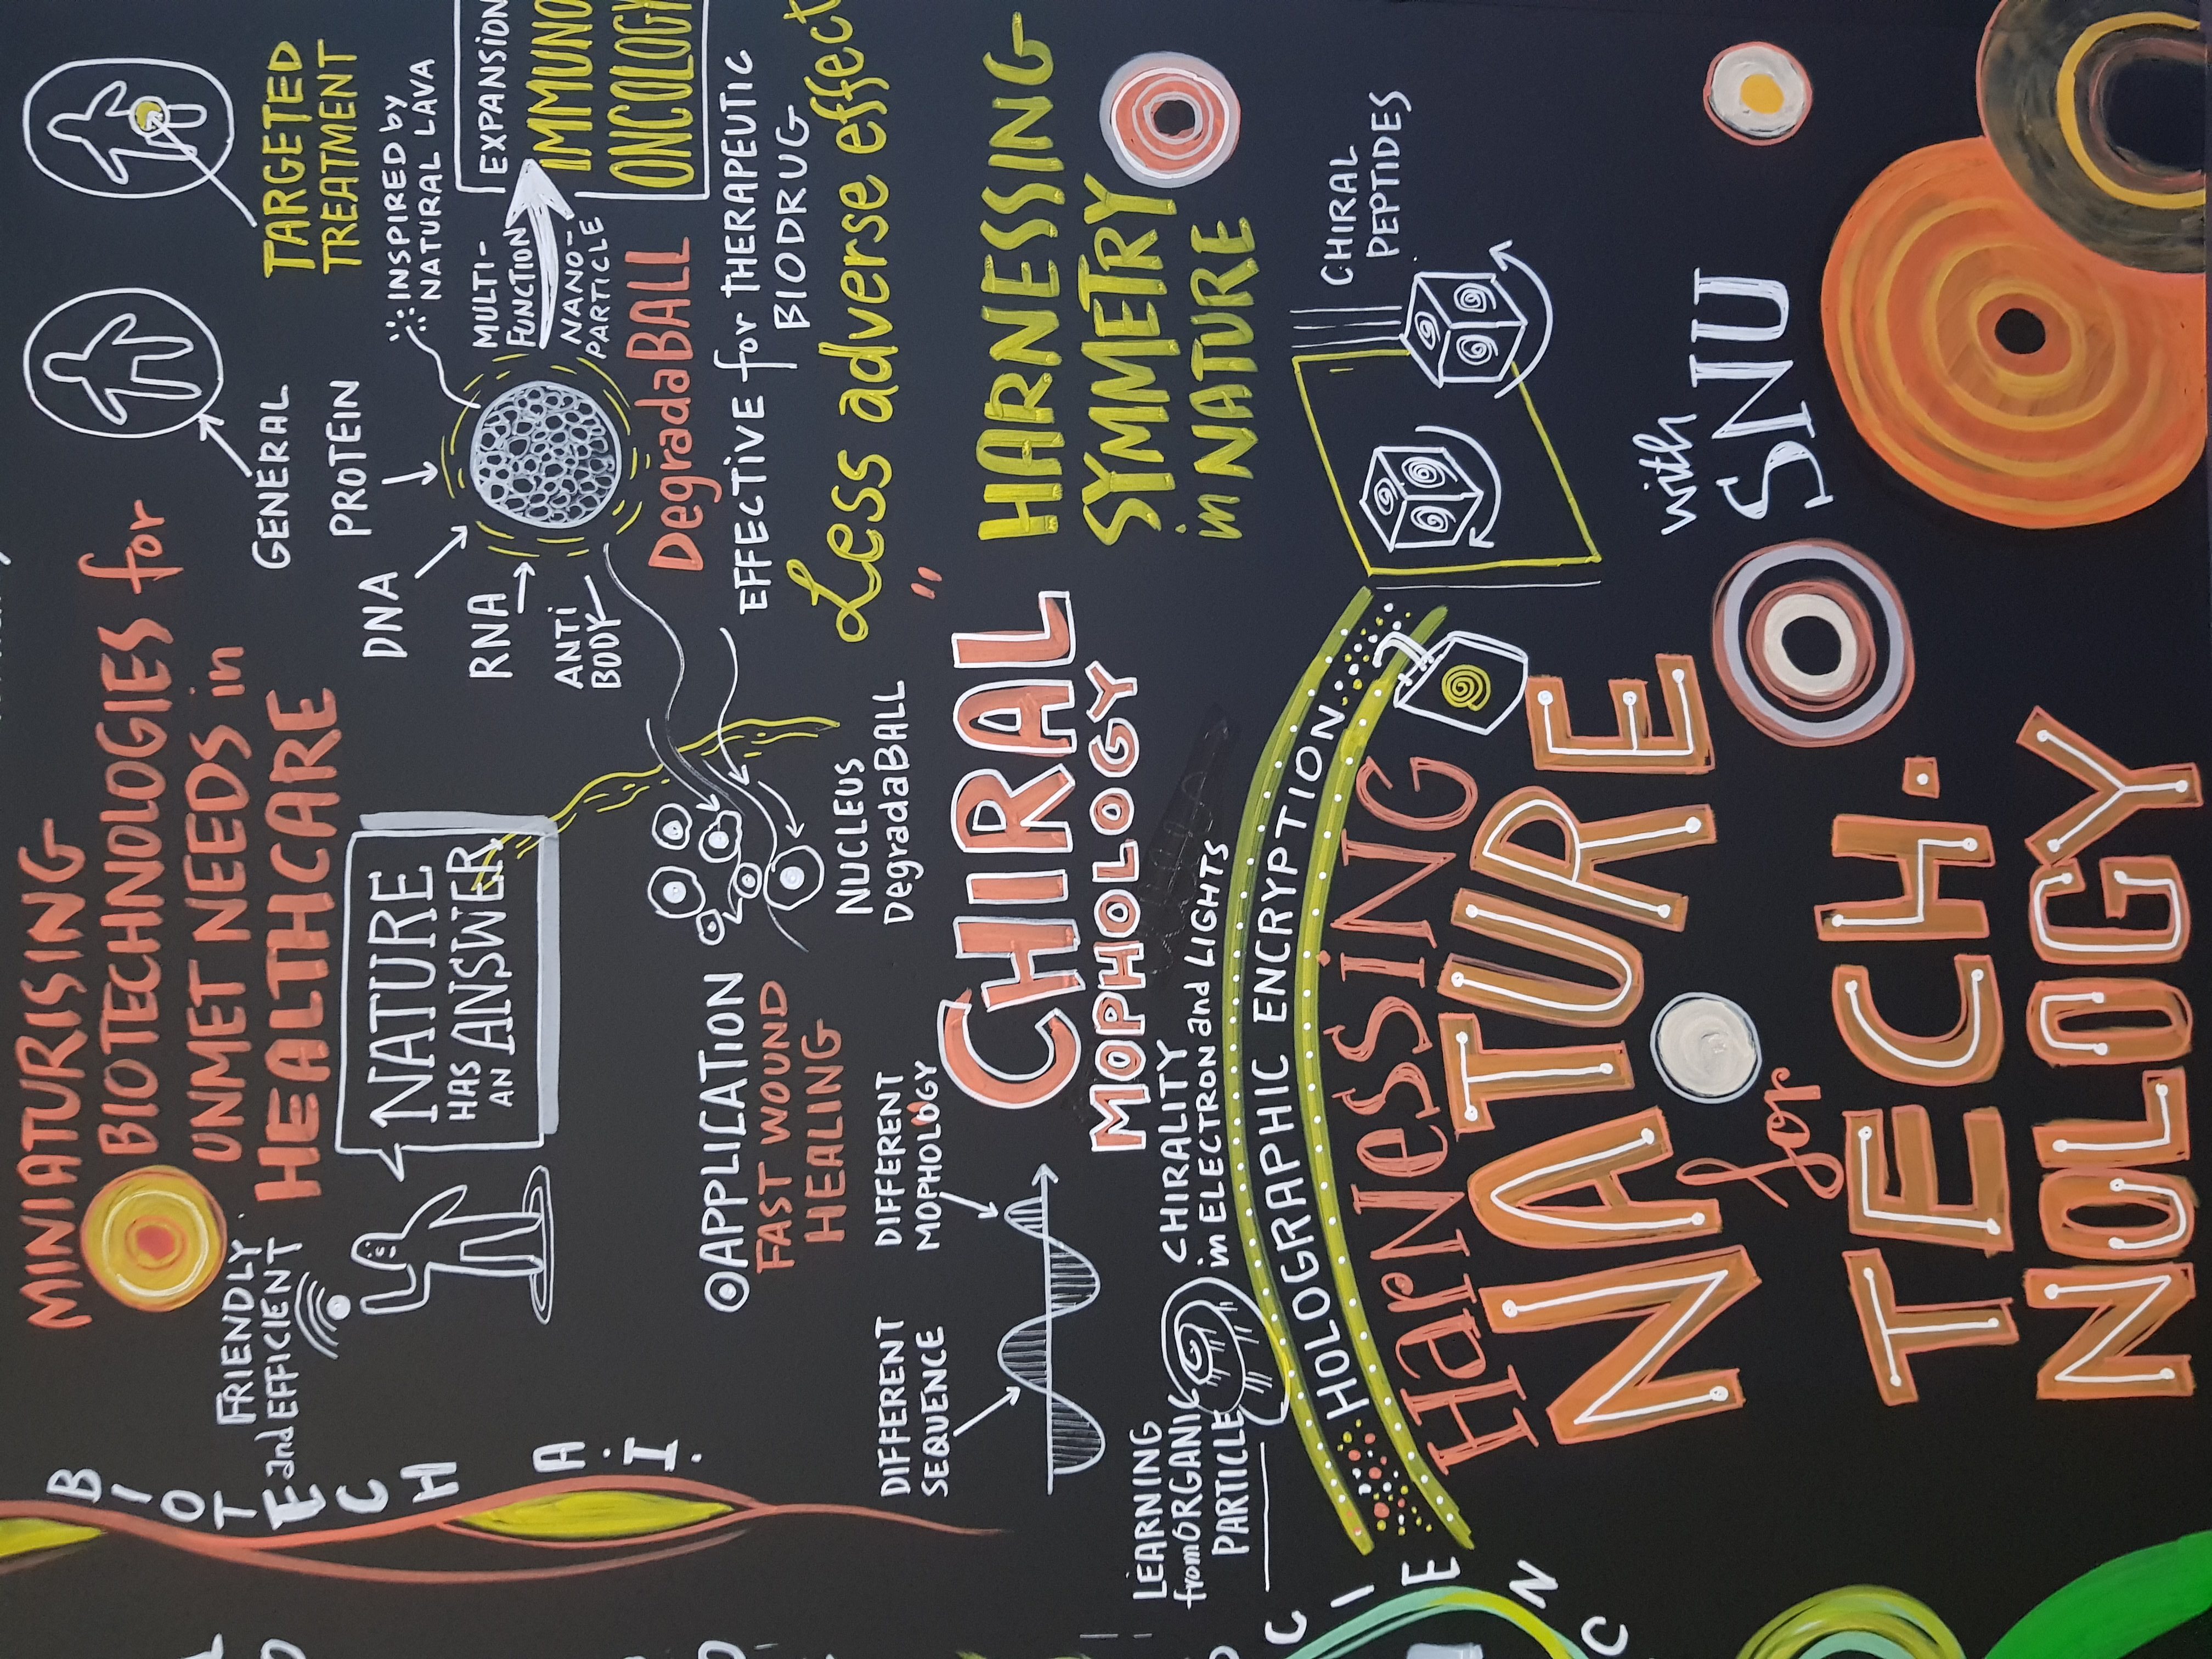 MINIATURISING
BIOTECHNOLOGIES for
UNMET NEEDS in
HEALTHCARE
FRIENDLY
and EFFICIENT
NATURE
HAS ANSWER
AN
BIOTECH
A.I.
GENERAL
TARGETED
TREATMENT
PROTEIN
DNA
RNA
ANTI
BODY
INSPIRED by
NATURAL LAVA
MULTI-
FUNCTION
NANO-
PARTICLE
EXPANSION
IMMUNO
ONCOLOGY
DegradaBALL
EFFECTIVE for THERAPEUTIC
BIODRUG
Less adverse effect
APPLICATION
FAST WOUND
HEALING
NUCLEUS
DegradaBALL
"
CHIRAL
MOPHOLOGY
DIFFERENT
SEQUENCE
DIFFERENT
MOPHOLOGY
HARNESSING
SYMMETRY
in NATURE
LEARNING
from ORGANI
PARTICLE
CHIRALITY
in ELECTRON and LIGHTS
HOLOGRAPHIC ENCRYPTION
CHIRAL
PEPTIDES
HARNESSING
NATURE
for
TECH.
NOLOGY
with
SNU
CIENC